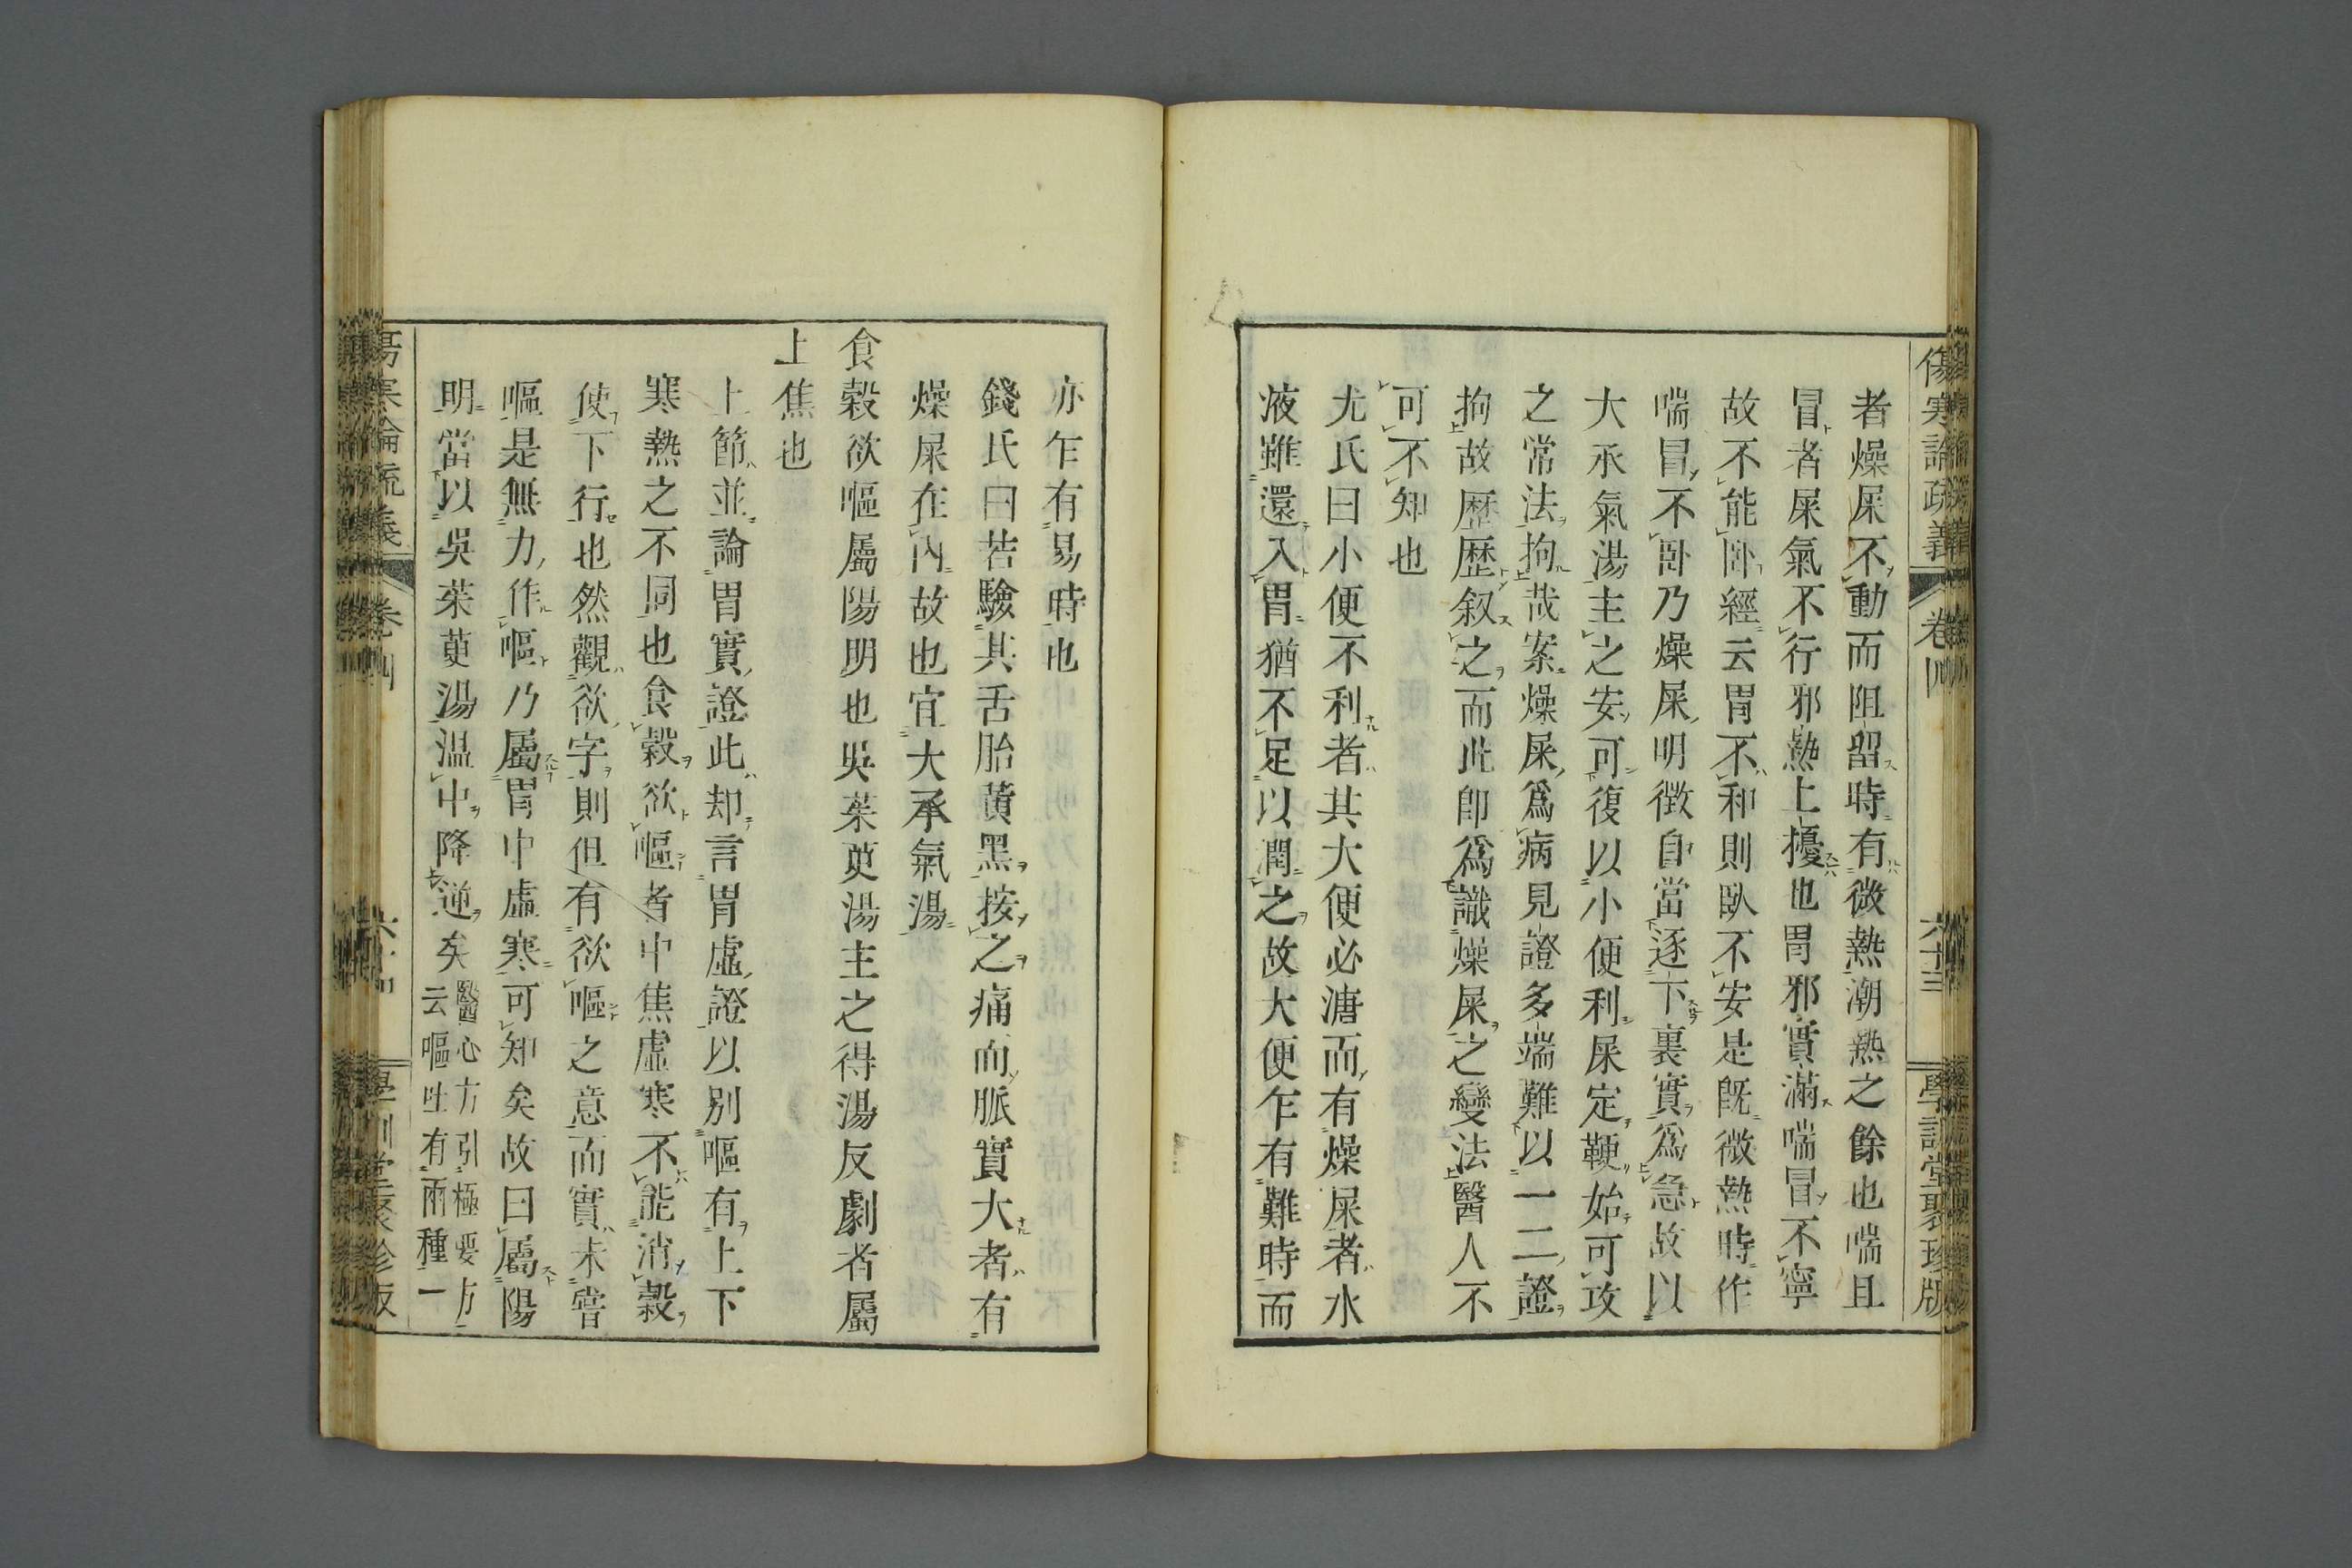 傷寒論疏義 卷四 六十三 學訓堂聚珍版
者燥屎不動而阻留時有微熱潮熱之餘也喘且
冒者屎氣不行邪熱上擾也胃邪實滿喘冒不寧
故不能卧經云胃不和則臥不安是既微熱時作
喘冒不卧乃燥屎明徴自當逐下裏實爲急故以
大承氣湯主之安可復以小便利屎定鞕始可攻
之常法拘哉案燥屎爲病見證多端難以一二證
拘故歷歷叙之而此卽爲識燥屎之變法醫人不
可不知也
尤氏曰小便不利者其大便必溏而有燥屎者水
液雖還入胃猶不足以潤之故大便乍有難時而
亦乍有易時也
錢氏曰若驗其舌胎黄黑按之痛而脈實大者有
燥屎在內故也宜大承氣湯
食榖欲嘔屬陽明也吳茱萸湯主之得湯反劇者屬
上焦也
上節並論胃實證此却言胃虛證以別嘔有上下
寒熱之不同也食榖欲嘔者中焦虛寒不能消榖
使下行也然觀欲字則但有欲嘔之意而實未嘗
嘔是無力作嘔乃屬胃中虛寒可知矣故曰屬陽
明當以吳茱萸湯温中降逆矣醫心方引極要方
云嘔吐有兩種一
傷寒論疏義 卷四 學訓堂聚珍版